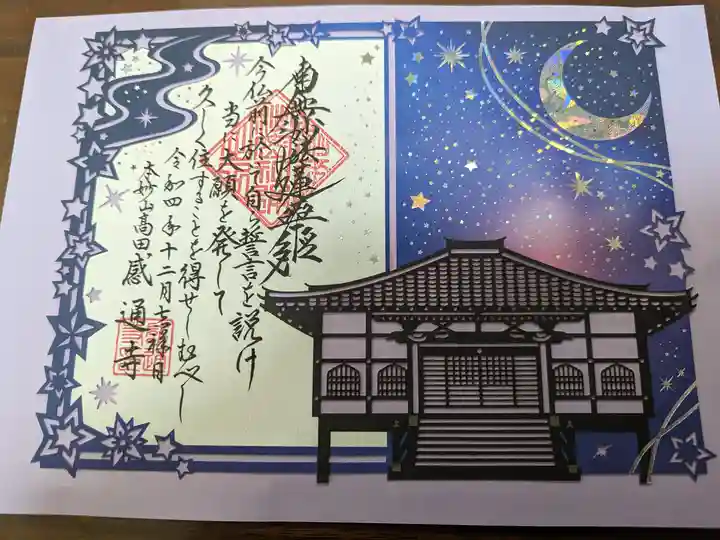 南無妙法蓮華経
今仏前於て自誓言を説け
当大願を発して
久しく住することを得せしむべし
令和四年十二月吉祥日
本妙山高田感通寺